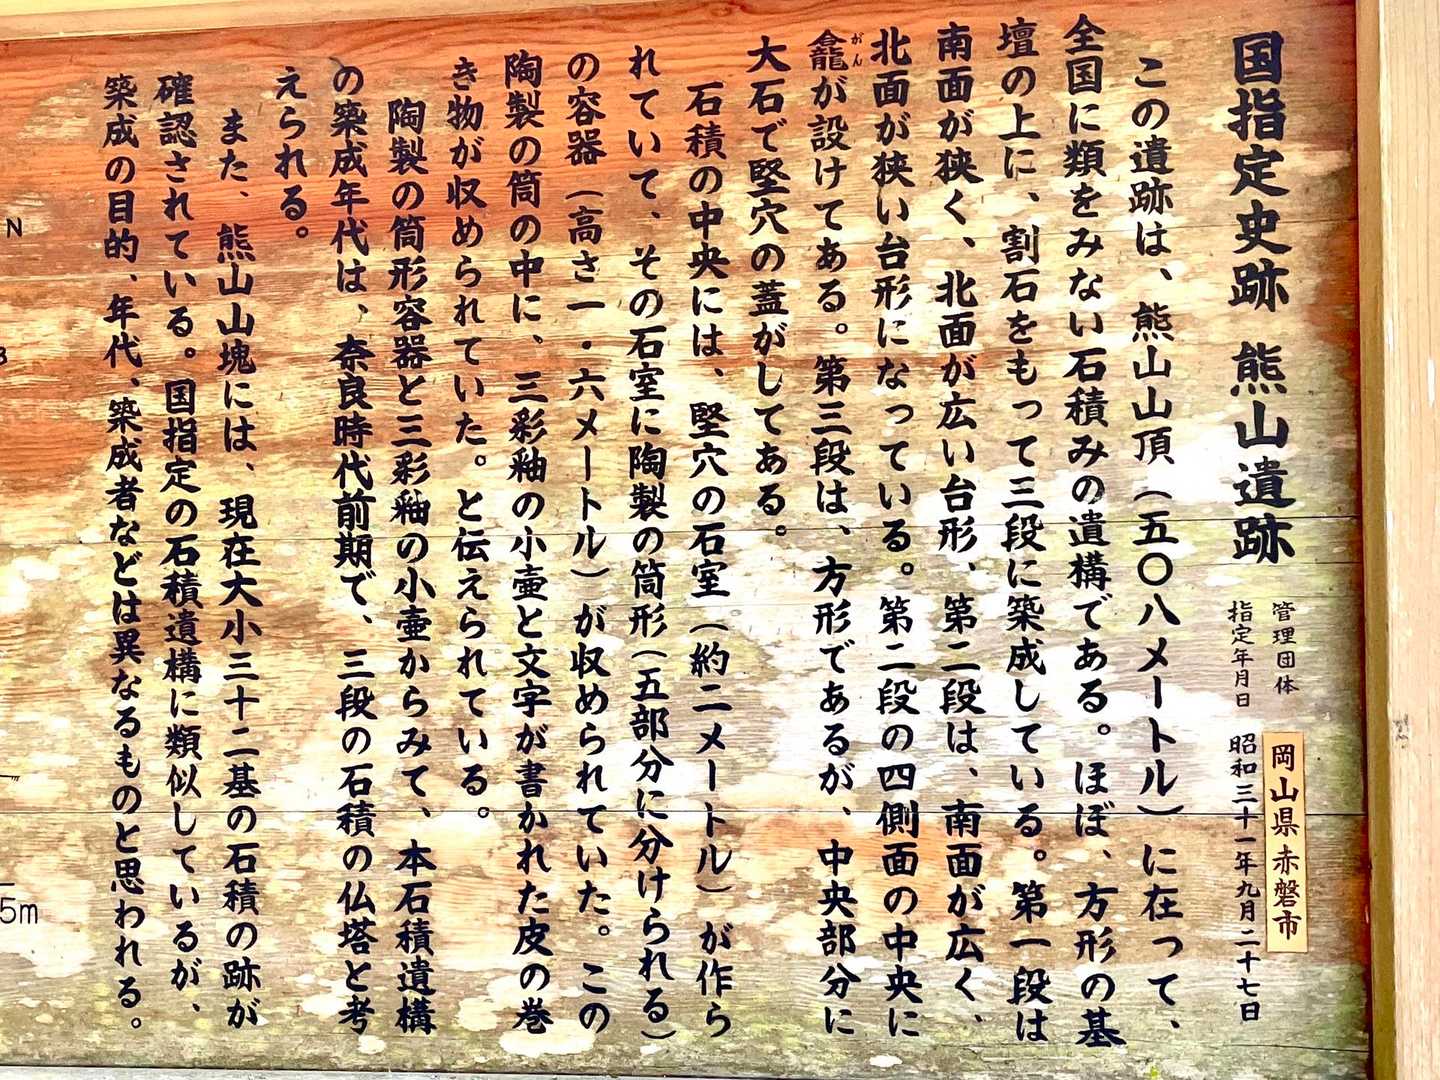 国指定史跡 熊山遺跡
管理団体 岡山県 赤磐市
指定年月日 昭和三十一年九月二十七日
この遺跡は、熊山山頂（五〇八メートル）に在って、
全国に類をみない石積みの遺構である。ほぼ、方形の基
壇の上に、割石をもって三段に築成している。第一段は
南面が狭く、北面が広い台形、第二段は、南面が広く、
北面が狭い台形になっている。第二段の四側面の中央に
龕が設けてある。第三段は、方形であるが、中央部分に
がん
大石で竪穴の蓋がしてある。
石積の中央には、竪穴の石室（約二メートル）が作ら
れていて、その石室に陶製の筒形（五部分に分けられる）
の容器（高さ一・六メートル）が収められていた。この
陶製の筒の中に、三彩釉の小壷と文字が書かれた皮の巻
き物が収められていた。と伝えられている。
陶製の筒形容器と三彩釉の小壷からみて、本石積遺構
の築成年代は、奈良時代前期で、三段の石積の仏塔と考
えられる。
また、熊山山塊には、現在大小三十二基の石積の跡が
確認されている。国指定の石積遺構に類似しているが、
築成の目的、年代、築成者などは異なるものと思われる。
N
5m